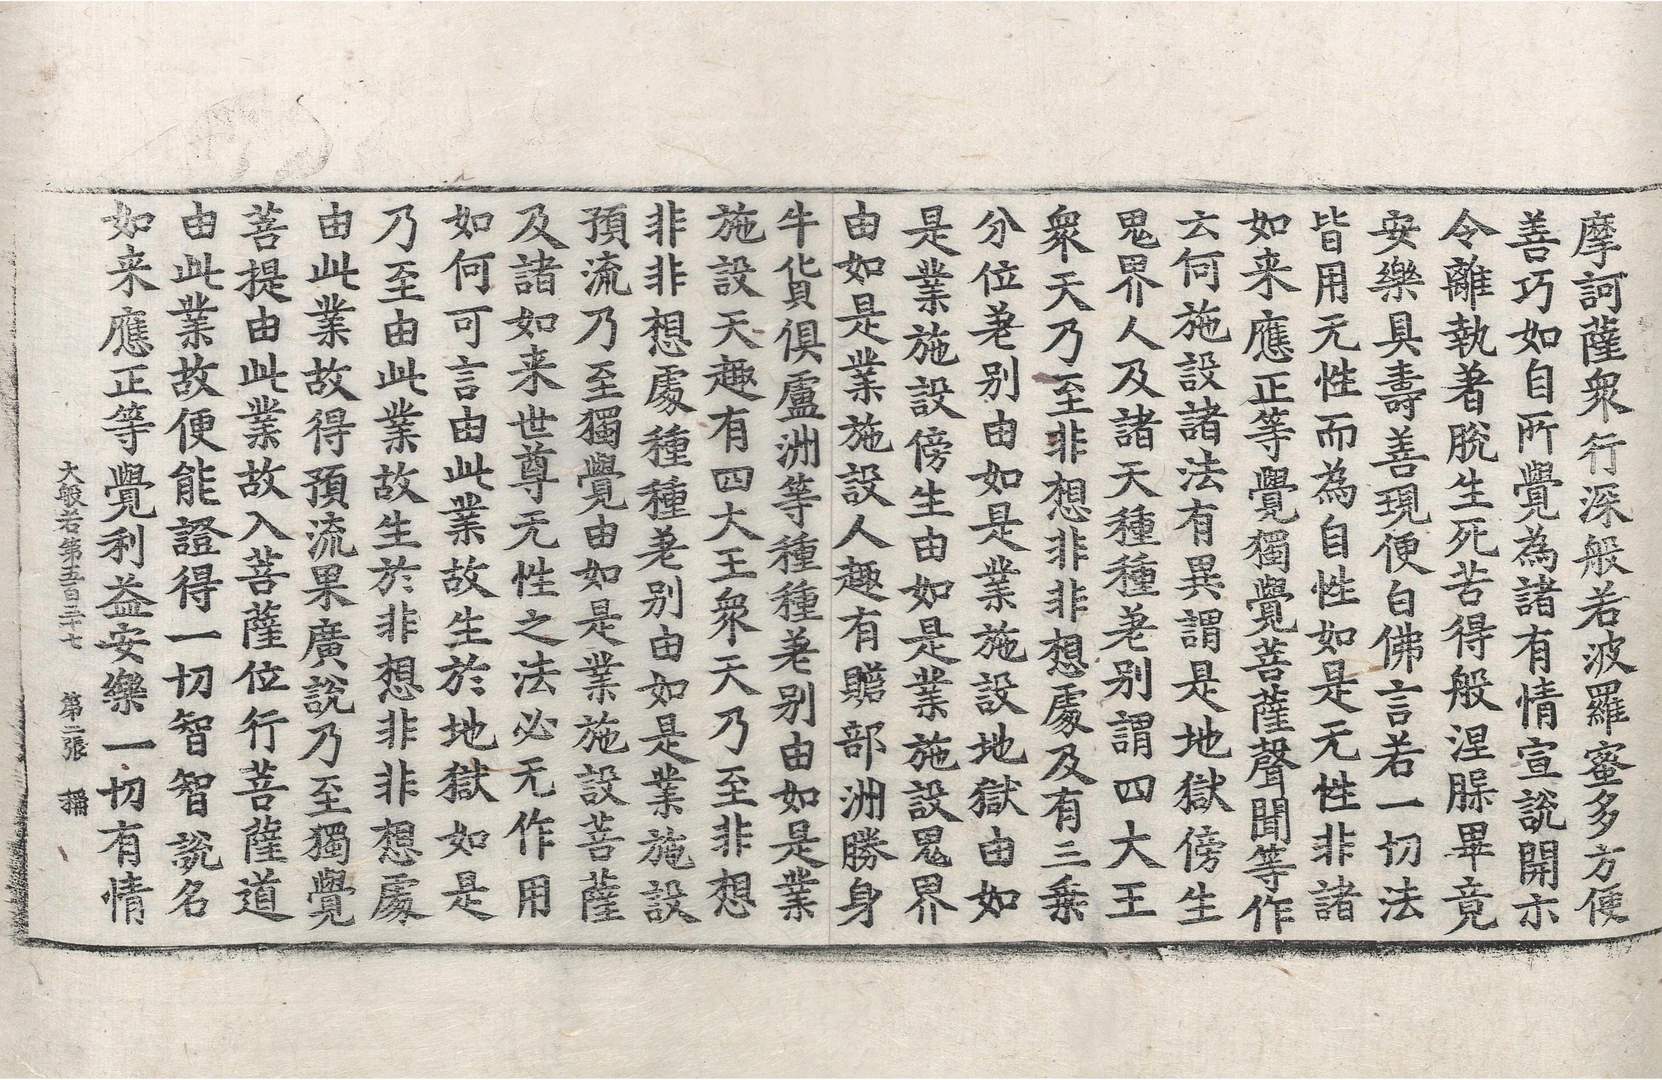 摩訶薩衆行深般若波羅蜜多方便
善巧如自所覺為諸有情宣說開示
令離執著脫生死苦得般涅槃畢竟
安樂具壽善現便白佛言若一切法
皆用无性而為自性如是无性非諸
如来應正等覺獨覺菩薩聲聞等作
云何施設諸法有異謂是地獄傍生
鬼界人及諸天種種差別謂四大王
衆天乃至非想非非想處及有三乗
分位差別由如是業施設地獄由如
是業施設傍生由如是業施設鬼界
由如是業施設人趣有贍部洲勝身
牛貨俱盧洲等種種差別由如是業
施設天趣有四大王衆天乃至非想
非非想處種種差別由如是業施設
預流乃至獨覺由如是業施設菩薩
及諸如来世尊无性之法必无作用
如何可言由此業故生於地獄如是
乃至由此業故生於非想非非想處
由此業故得預流果廣說乃至獨覺
菩提由此業故入菩薩位行菩薩道
由此業故便能證得一切智智說名
如来應正等覺利益安樂一切有情
大般若第五百三十七 第二張 稱